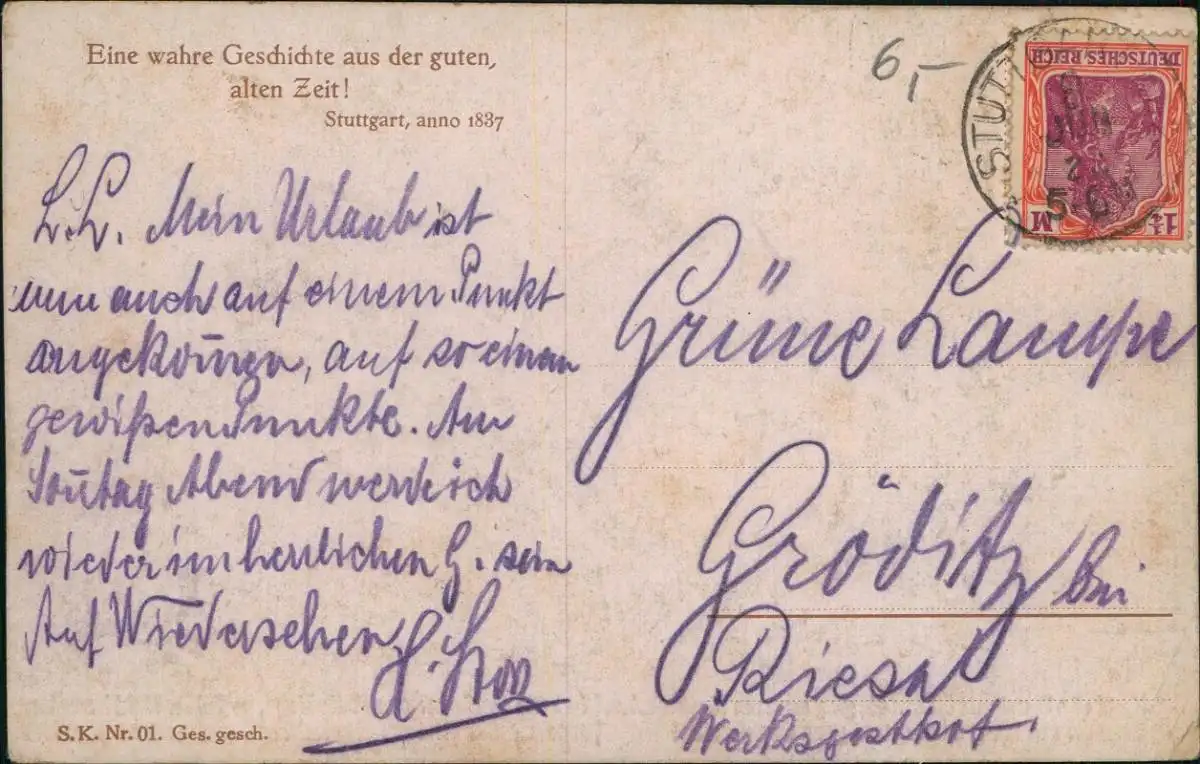 Eine wahre Geschichte aus der guten,
alten Zeit!
Stuttgart, anno 1837
L. L. Mein Urlaub ist
nun auch auf einem Punkt
angekom̄en, auf so einem
gewißen Punkte. Am
Son̄tag Abend werde ich
wieder im herrlichen G. sein
Auf Wiedersehen
H.
S.K. Nr. 01. Ges. gesch.
6,-
STUTTG
JUN
5-6
DEUTSCHES REICH
1¼ M
Grüne Lampe
Gröditz bei
Riesa
Werksgasthof.